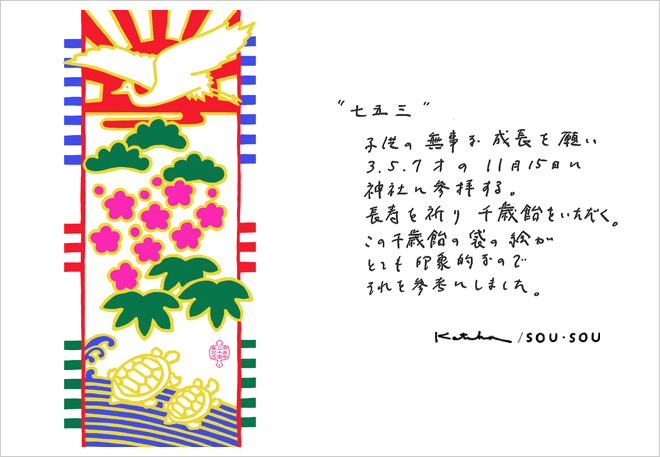 "七五三"
子供の無事な成長を願い
3.5.7才の11月15日に
神社に参拝する。
長寿を祈り千歳飴をいただく。
この千歳飴の袋の絵が
とても印象的なので
それを参考にしました。
Katsuji /SOU・SOU